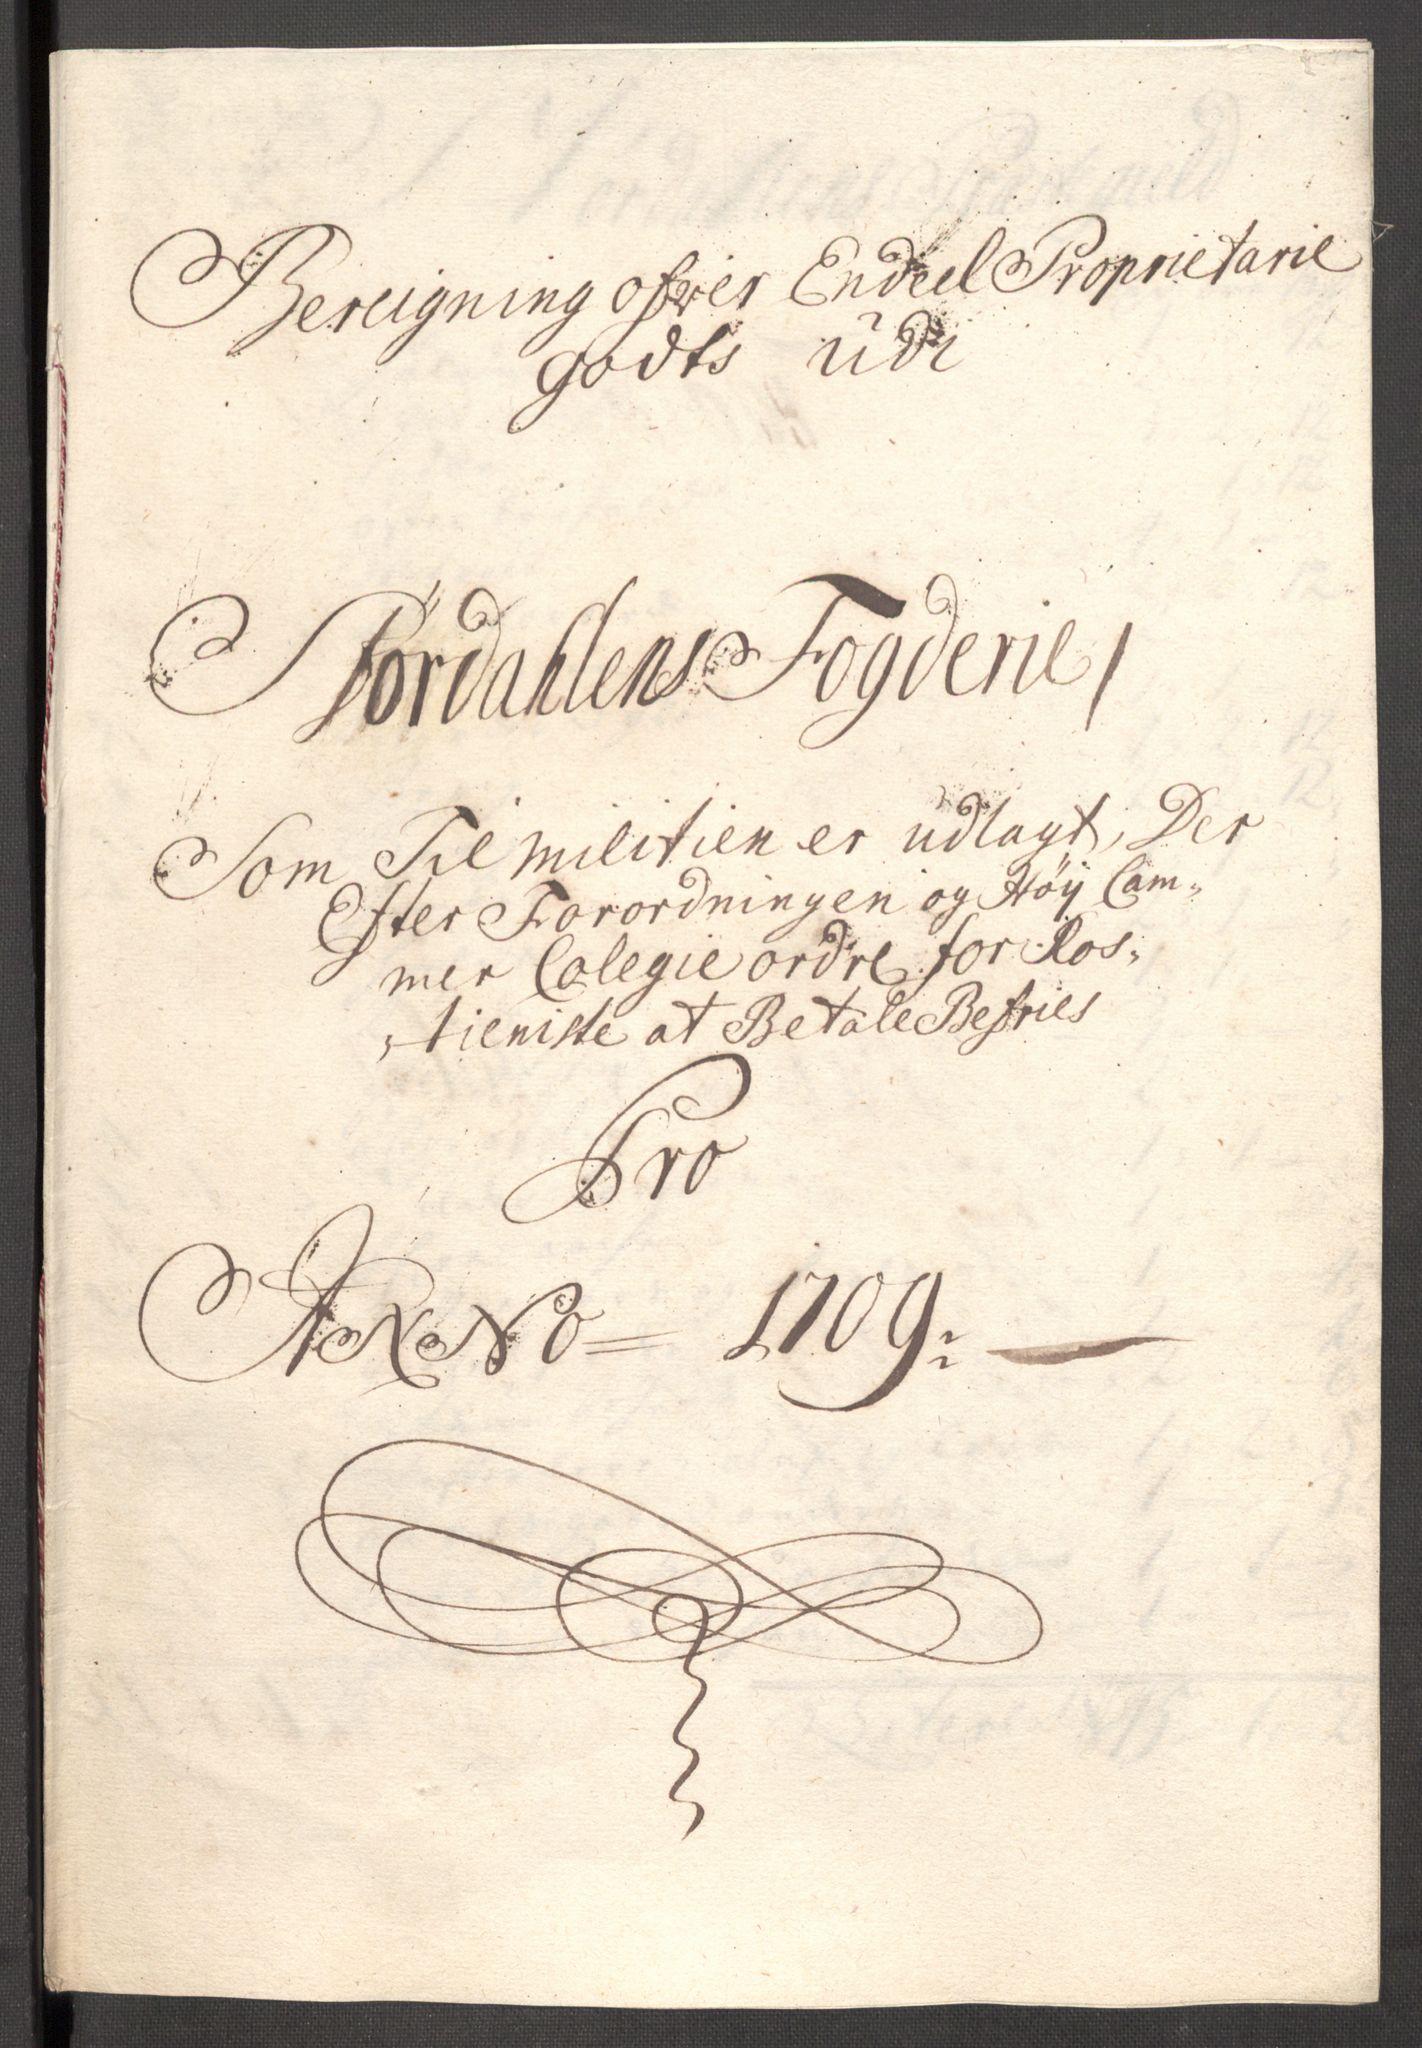 Bereigning ofver Endeel Proprietarie
godts udi
Stördahlens Fogderie /
Som Til militien er udlagt, Der
Efter Forordningen og Höÿ Cam„
mer Colegie ordre for Ros„
„tieniste at Betale Befries
Pro
ANNO = 1709: